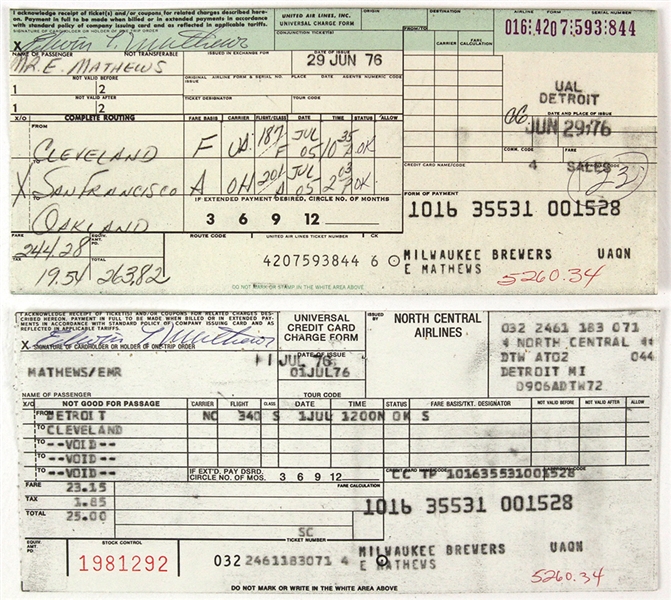 I acknowledge receipt of ticket(s) and/or coupons for related charges described here-
on. Payment in full to be made when billed or in extended payments in accordance with
standard policy of company issuing card and as reflected in applicable tariffs.
SIGNATURE OF CARDHOLDER OR HOLDER OF ONE-TRIP ORDER
X Edwin L. Mathews
UNITED AIR LINES, INC.
UNIVERSAL CHARGE FORM
CONJUNCTION TICKET(S)
FROM/TO
CARRIER
FARE CALCULATION
016:4207:593:844
NAME OF PASSENGER NOT TRANSFERABLE
MR. E. MATHEWS
ISSUED IN EXCHANGE FOR
DATE OF ISSUE
29 JUN 76
NOT VALID BEFORE
1 2
NOT VALID AFTER
1 2
ORIGINAL AIRLINE FORM & SERIAL NO. PLACE DATE AGENTS NUMERIC CODE
TICKET DESIGNATOR TOUR CODE
UAL
DETROIT
CC JUN 29:76
DATE AND PLACE OF ISSUE
COMM. CODE
4 SALES
23
X/O COMPLETE ROUTING FARE BASIS CARRIER FLIGHT/CLASS DATE TIME STATUS ALLOW
FROM
CLEVELAND F UA 187 F JUL 05 10 35 A OK
X SAN FRANCISCO A OH 201 A JUL 05 2 03 P OK
OAKLAND
IF EXTENDED PAYMENT DESIRED, CIRCLE NO. OF MONTHS
3 6 9 12
CREDIT CARD NAME/CODE
FORM OF PAYMENT
1016 35531 001528
FARE
244.28
EQUIV. AMT. PD.
TAX
19.54
TOTAL
263.82
ROUTE CODE UNITED AIR LINES TICKET NUMBER CK
4207593844 6
MILWAUKEE BREWERS UAQN
E MATHEWS
5260.34
DO NOT MARK OR STAMP IN THE WHITE AREA ABOVE
I ACKNOWLEDGE RECEIPT OF TICKET(S) AND/OR COUPONS FOR RELATED CHARGES DE-
SCRIBED HEREON. PAYMENT IN FULL TO BE MADE WHEN BILLED OR IN EXTENDED PAY-
MENTS IN ACCORDANCE WITH STANDARD POLICY OF COMPANY ISSUING CARD AND AS
REFLECTED IN APPLICABLE TARIFFS.
X Edwin L. Mathews
SIGNATURE OF CARDHOLDER OR HOLDER OF ONE-TRIP ORDER
UNIVERSAL
CREDIT CARD
CHARGE FORM
ISSUED BY
NORTH CENTRAL
AIRLINES
032 2461 183 071
* NORTH CENTRAL *
DTW AT02 044
DETROIT MI
0906ADTW72
1 JUL 76
DATE OF ISSUE
01JUL76
MATHEWS/EMR
NAME OF PASSENGER
TOUR CODE
X/O NOT GOOD FOR PASSAGE CARRIER FLIGHT CLASS DATE TIME STATUS FARE BASIS/TKT. DESIGNATOR NOT VALID BEFORE NOT VALID AFTER ALLOW
FROM DETROIT NC 340 S 1JUL 1200N OK S
TO CLEVELAND
TO --VOID--
TO --VOID--
TO --VOID--
IF EXT'D. PAY DSRD.
CIRCLE NO. OF MOS. 3 6 9 12
CREDIT CARD NAME/CODE
CC TP 101635531001528
FARE
23.15
FARE CALCULATION
TAX
1.85
TOTAL
25.00
1016 35531 001528
SC
EQUIV. AMT. PD.
STOCK CONTROL
1981292
TICKET NUMBER
032 2461183071 4
MILWAUKEE BREWERS UAQN
E MATHEWS
5260.34
DO NOT MARK OR WRITE IN THE WHITE AREA ABOVE